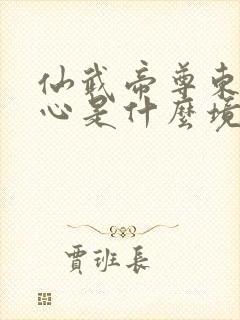 仙武帝尊東
心是什麼境
賈班長